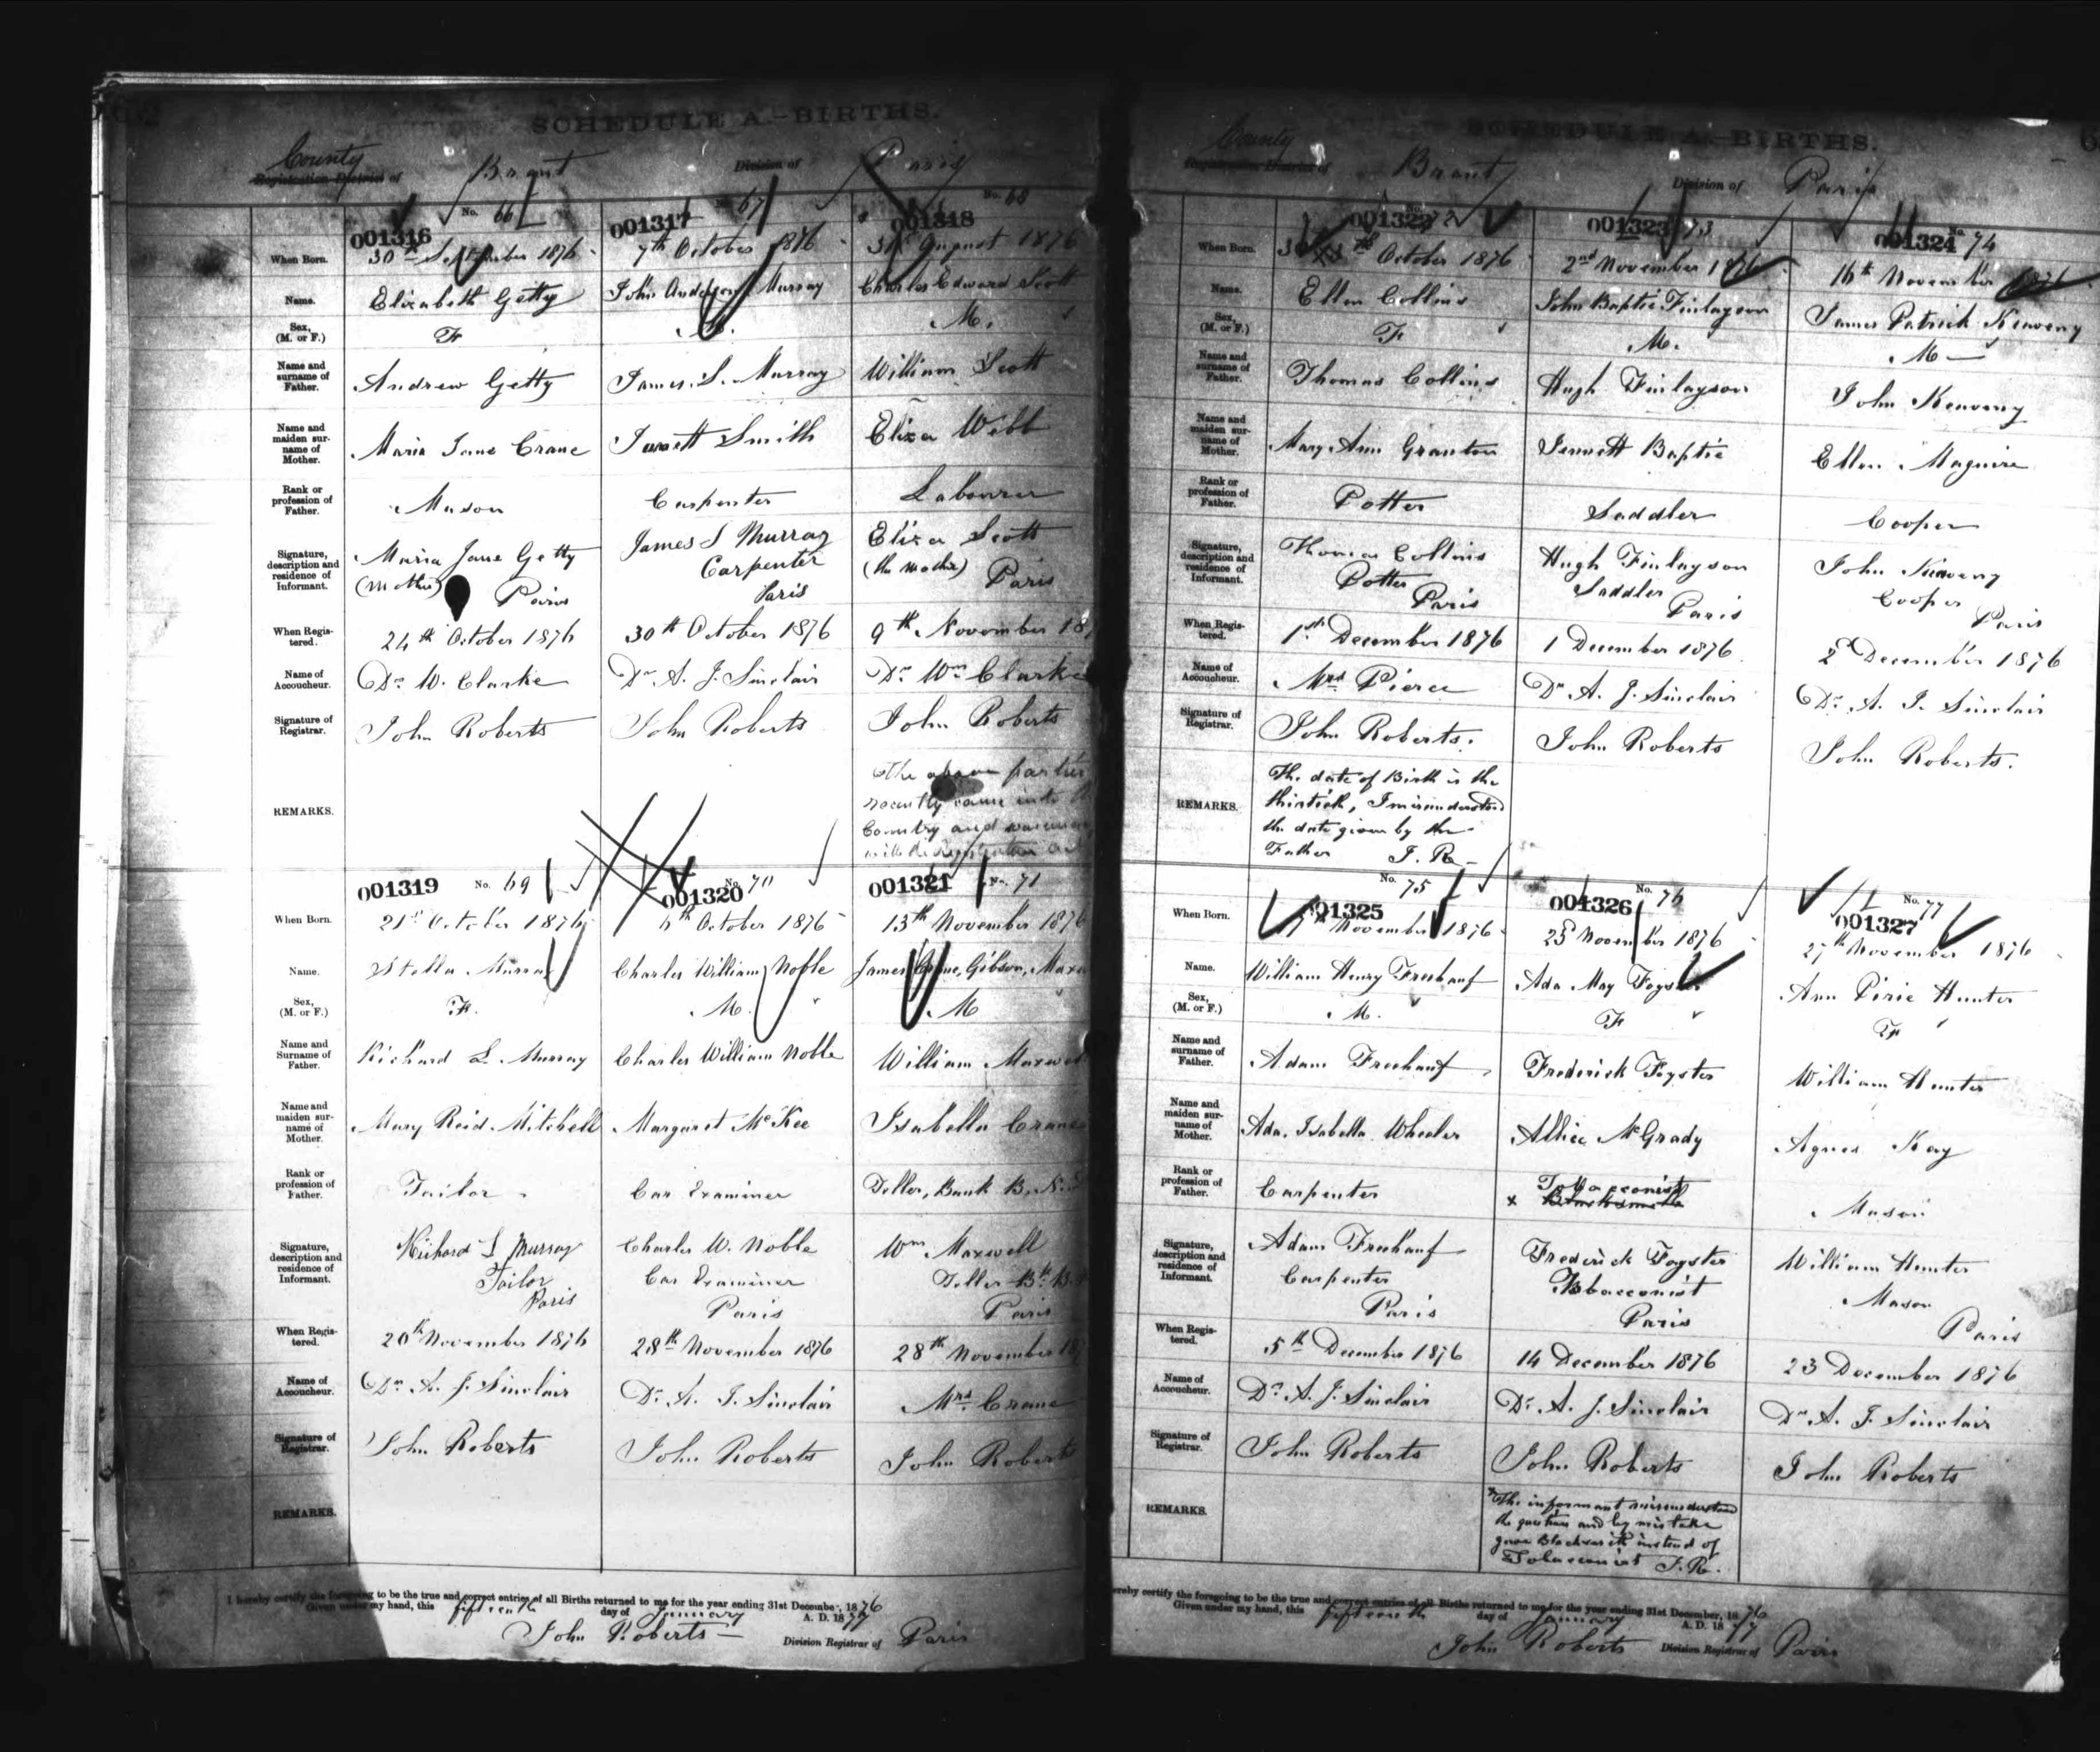 SCHEDULE A.—BIRTHS.
County
Registration District of Brant Division of Paris
No. 66 67 No. 68
001316 001317 001318
When Born. 30th September 1876 7th October 1876 31st August 1876
Name. Elizabeth Getty John Anderson Murray Charles Edward Scott
Sex, (M. or F.) F M. M.
Name and surname of Father. Andrew Getty James S. Murray William Scott
Name and maiden surname of Mother. Maria Jane Crane Smith Eliza Webb
Rank or profession of Father. Mason Carpenter Labourer
Signature, description and residence of Informant. Maria Jane Getty James S Murray Eliza Scott
(Mother) Paris Carpenter Paris (the mother) Paris
When Registered. 24th October 1876 30th October 1876 9th November 187
Name of Accoucheur. Dr. W. Clarke Dr. A. J. Sinclair Dr. Wm Clarke
Signature of Registrar. John Roberts John Roberts John Roberts
REMARKS. The above parties
recently came into
Country and
with the Registration Act
001319 No. 69 001320 No. 70 001321 No. 71
When Born. 21st October 1876 October 1876 13th November 1876
Name. Stella Murray Charles William Noble James Gibson
Sex, (M. or F.) F. M. M
Name and Surname of Father. Richard L. Murray Charles William Noble William Maxwel
Name and maiden surname of Mother. Mary Reid Mitchell Margaret McKee Isabella Crane
Rank or profession of Father. Tailor Car Examiner Teller, Bank B. N.
Signature, description and residence of Informant. Richard L Murray Charles W. Noble Wm Maxwell
Tailor Car Examiner Teller Bk B.
Paris Paris Paris
When Registered. 20th November 1876 28th November 1876 28th November 18
Name of Accoucheur. Dr. A. J. Sinclair Dr. A. J. Sinclair Mrs. Crane
Signature of Registrar. John Roberts John Roberts John Roberts
REMARKS.
I hereby certify the foregoing to be the true and correct entries of all Births returned to me for the year ending 31st December, 1876
Given under my hand, this fifteenth day of January A. D. 1877
John Roberts Division Registrar of Paris
SCHEDULE A.—BIRTHS.
County
Registration District of Brant Division of Paris
001322 No. 72 001323 73 001324 No. 74
When Born. 30th October 1876 2nd November 1876 16th November 1876
Name. Ellen Collins John Baptie Finlayson James Patrick Keaveny
Sex, (M. or F.) F. M. M
Name and surname of Father. Thomas Collins Hugh Finlayson John Keaveny
Name and maiden surname of Mother. Mary Ann Granton Jennett Baptie Ellen Maguire
Rank or profession of Father. Potter Saddler Cooper
Signature, description and residence of Informant. Thomas Collins Hugh Finlayson John Keaveny
Potter Saddler Cooper
Paris Paris Paris
When Registered. 1st December 1876 1 December 1876 2d December 1876
Name of Accoucheur. Mrs Pierce Dr. A. J. Sinclair Dr. A. J. Sinclair
Signature of Registrar. John Roberts. John Roberts John Roberts.
REMARKS. The date of Birth is the
thirtieth, I misunderstood
the date given by the
Father J. R.
001325 No. 75 001326 No. 76 001327 No. 77
When Born. November 1876 25 November 1876 27th November 1876
Name. William Henry Freehauf Ada May Foyster Ann Pirie Hunter
Sex, (M. or F.) M. F F
Name and surname of Father. Adam Freehauf Frederick Foyster William Hunter
Name and maiden surname of Mother. Ada Isabella Wheeler McGrady Agnes Kay
Rank or profession of Father. Carpenter Tobacconist Mason
x Blacksmith
Signature, description and residence of Informant. Adam Freehauf Frederick Foyster William Hunter
Carpenter Tobacconist Mason
Paris Paris Paris
When Registered. 5th December 1876 14 December 1876 23 December 1876
Name of Accoucheur. Dr. A. J. Sinclair Dr. A. J. Sinclair Dr. A. J. Sinclair
Signature of Registrar. John Roberts John Roberts John Roberts
REMARKS. x The informant misunderstood
the question and by mistake
gave Blacksmith instead of
Tobacconist J. R.
ereby certify the foregoing to be the true and correct entries of all Births returned to me for the year ending 31st December, 1876
Given under my hand, this fifteenth day of January A. D. 1877
John Roberts Division Registrar of Paris